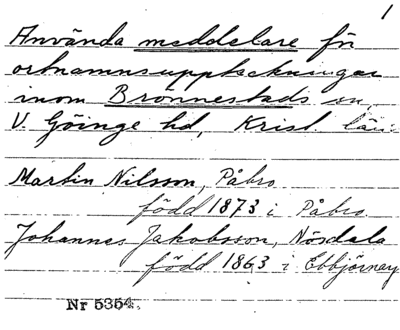 1
Använda meddelare för
ortnamnsuppteckningar
inom Brönnestads sn,
V. Göinge hd, Krist. län
Martin Nilsson, Påbro
född 1873 i Påbro
Johannes Jakobsson, Nösdala
född 1863 i Ebbjörnarp
Nr 5354.